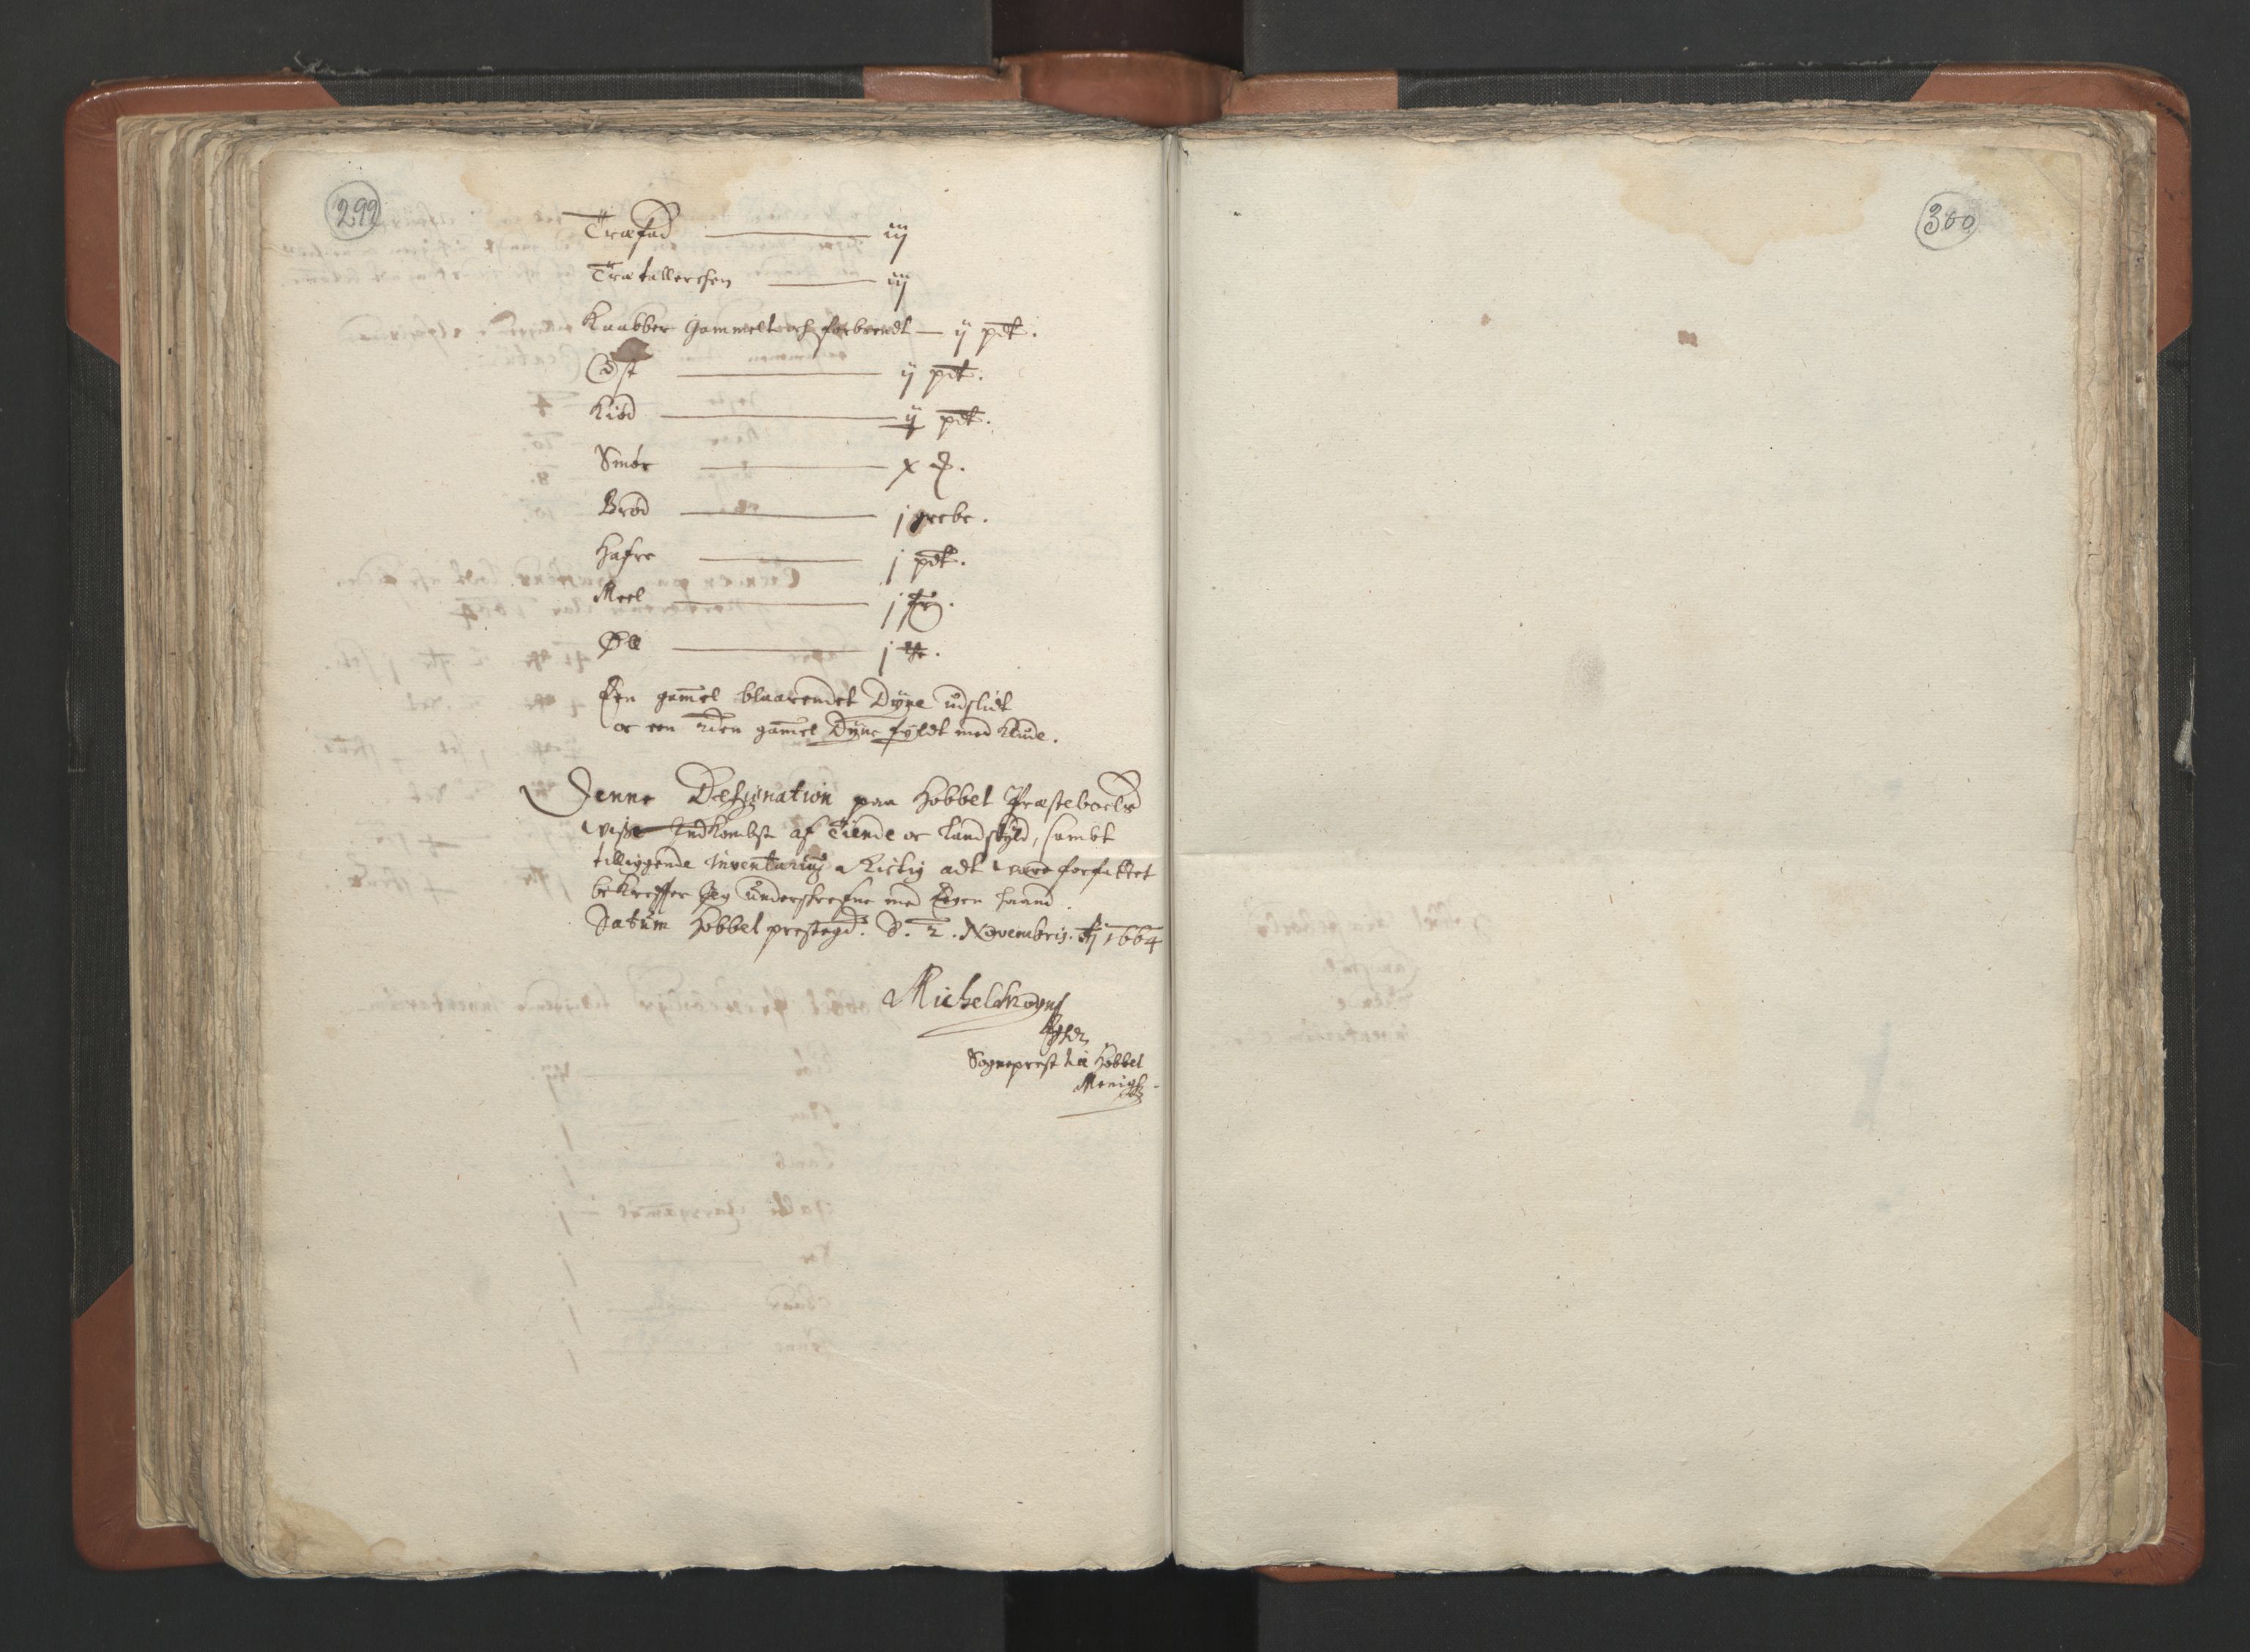 299
Træfad ——— iij
Trætallerchen ——— iij
Kaabber gammelt och forbrendt — ij pd.
Ost ——— ij pd.
Kiød ——— ij pd.
Smør ——— x
Brød ——— j
Hafre ——— j pd.
Meel ——— j
Øll ——— j
Een gamel blaarendet Dyne udslidt
oc een gamel Dyne fyldt med Klude.
Denne Designation paa Hobbel Præsteboels
visse Indkombst af Tiende oc Landskyld, sambt
tilliggende Inventarium Rictig adt være forfattet
bekreffter Jeg underskrefne med Egen haand.
Datum Hobbel prestegd: D. 2. Novembris. 1664
Sogneprest til Hobbel
Menigh
300